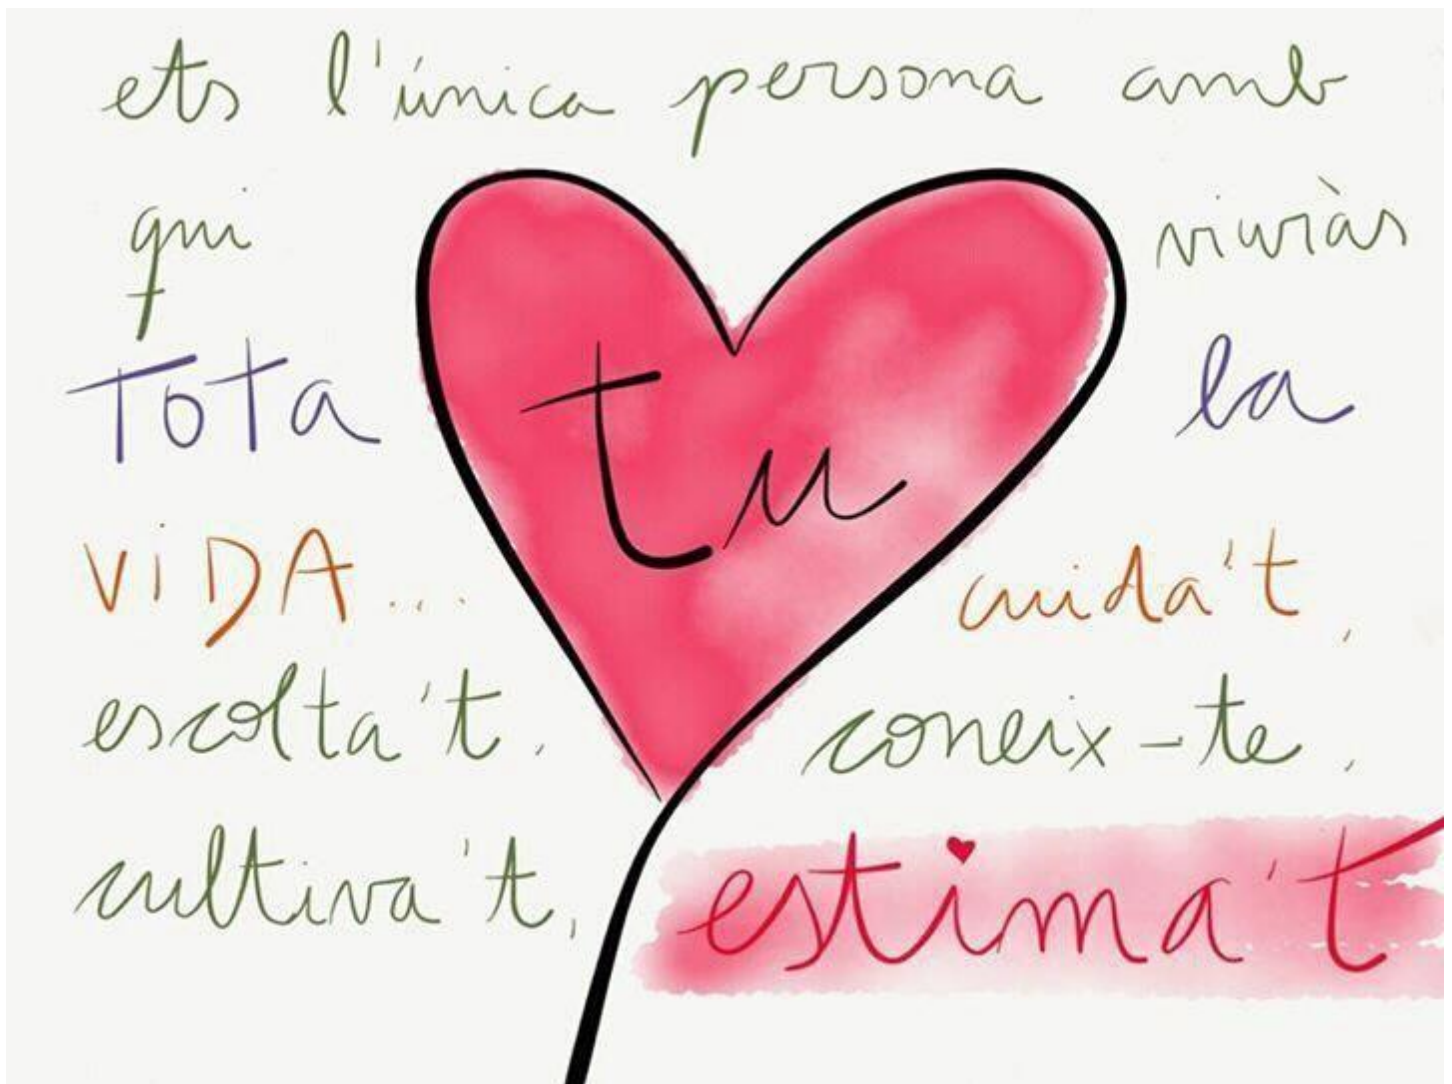 ets l'única persona amb
qui viuràs
TOTa la
tu
ViDA... cuida't,
escolta't, coneix-te,
cultiva't, estima't